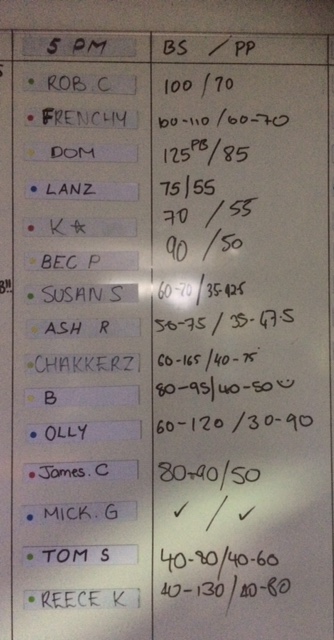 5 PM BS / PP
ROB C 100 / 70
FRENCHY 60-110 / 60-70
DOM 125 PB / 85
LANZ 75 / 55
K☆ 70 / 55
BEC P 90 / 50
!!
SUSAN S 60-70 / 35-42.5
ASH R 50-75 / 35-47.5
CHAKKERZ 60-165 / 40-75
B 80-95 / 40-50
OLLY 60-120 / 30-90
James. C 80-90 / 50
MICK. G ✓ / ✓
TOM S 40-80 / 40-60
REECE K 40-130 / 40-80